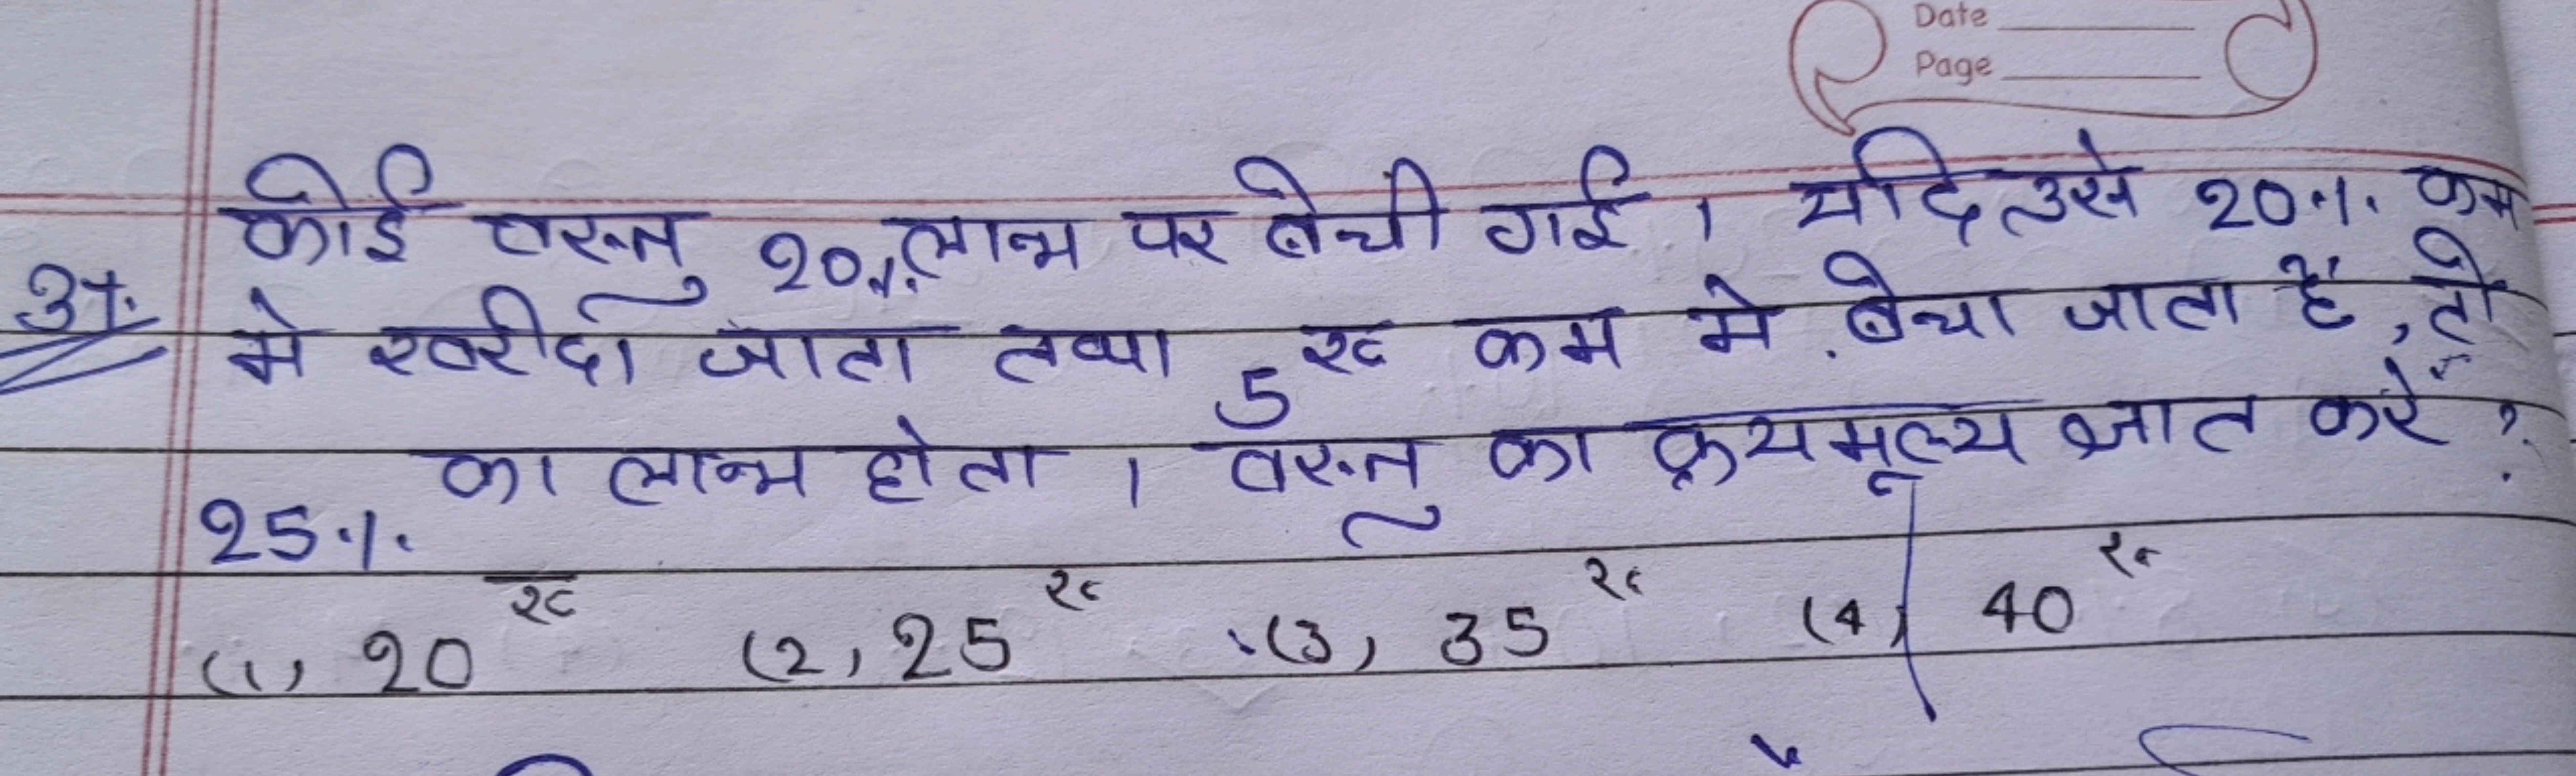 Date
Page
कोई वस्तु 20% लाभ पर बेची गई । यदि उसे 20% कम
37. मे खरीदा जाता तथा 5 रु कम मे बेचा जाता है, तो
25% का लाभ होता । वस्तु का क्रयमूल्य ज्ञात करें ?
(1) 20 रु (2) 25 रु (3) 35 रु (4) 40 रु